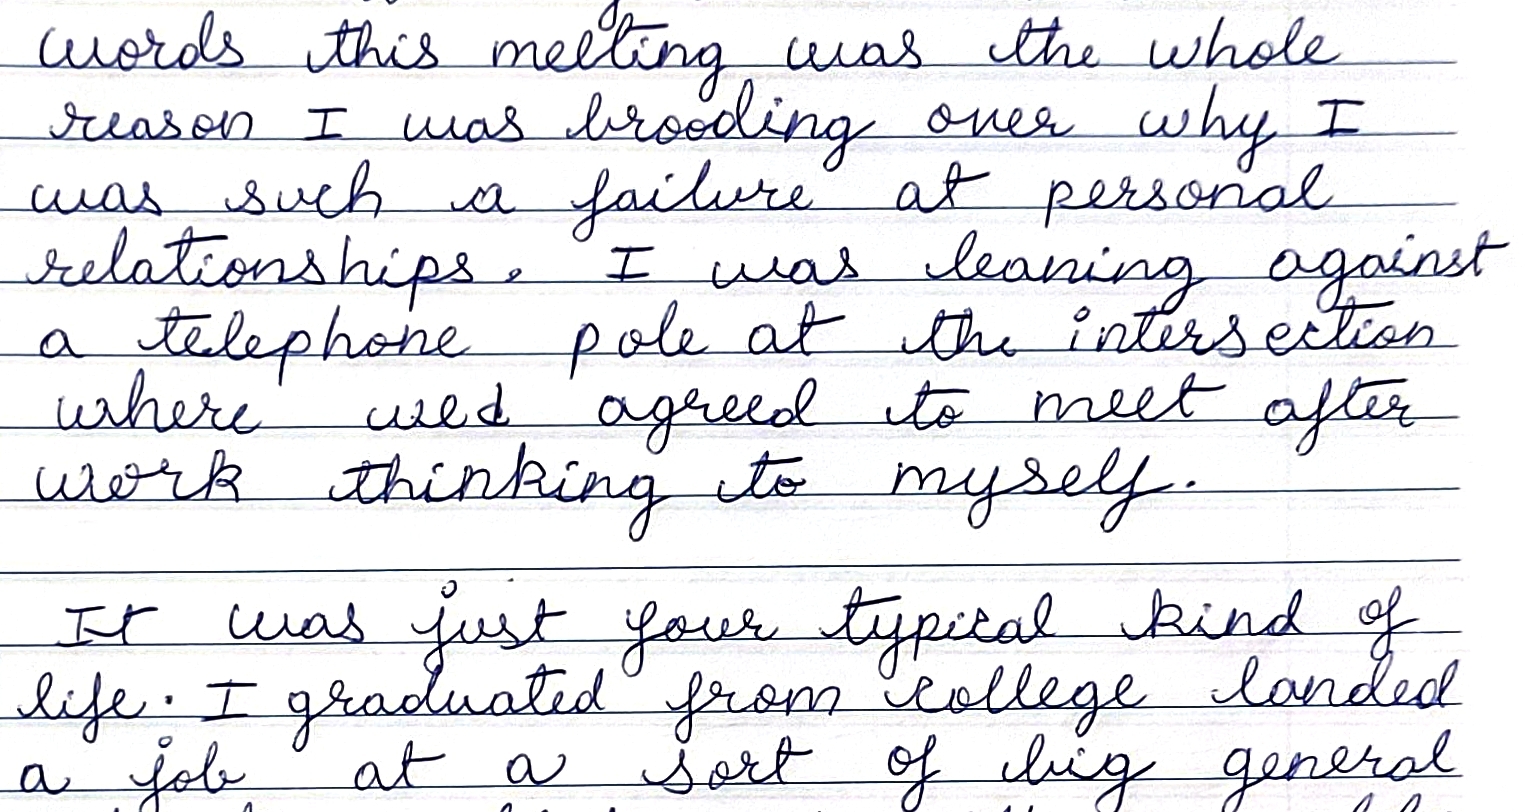 words this melting was the whole
reason I was brooding over why I
was such a failure at personal
relationships. I was leaning against
a telephone pole at the intersection
where wed agreed to meet after
work thinking to myself.
It was just your typical kind of
life. I graduated from college landed
a job at a sort of big general